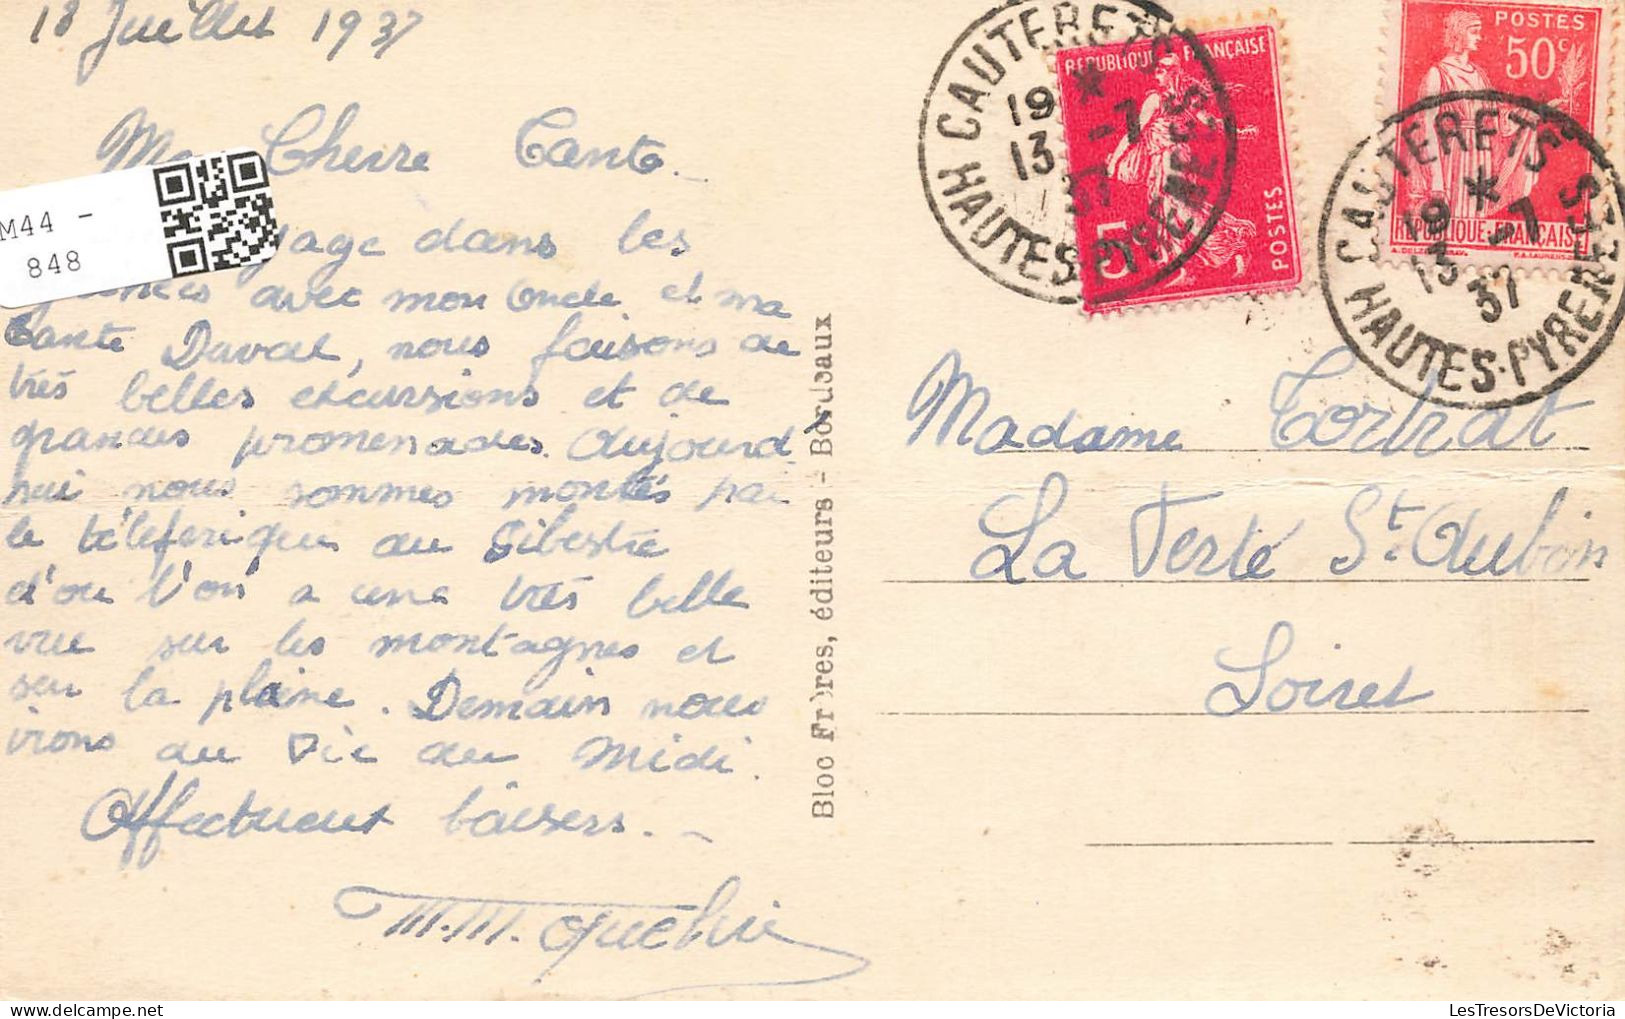 13 Juillet 1937
Ma Cherre Tante _
M44 -
848
yage dans les
avec mon Oncle et ma
tante Daval, nous faisons de
très belles excursions et de
grandes promenades. Aujourd
hui nous sommes montés par
le téleferique au
d'ou l'on a une très belle
vue sur les montagnes et
sur la plaine. Demain nous
irons au Pic du Midi.
Affectueux baisers. _
M.M.
Bloc Frères, éditeurs - Bordeaux
CAUTERETS
19 *
13 -7
37
HAUTES-PYRENEES
REPUBLIQUE FRANÇAISE
5
POSTES
POSTES
50c
REPUBLIQUE-FRANÇAISE
CAUTERETS
19 *
13 -7
37
HAUTES-PYRENEES
Madame Tortrat
La Ferté St. Aubin
Loiret
LesTresorsDeVictoria